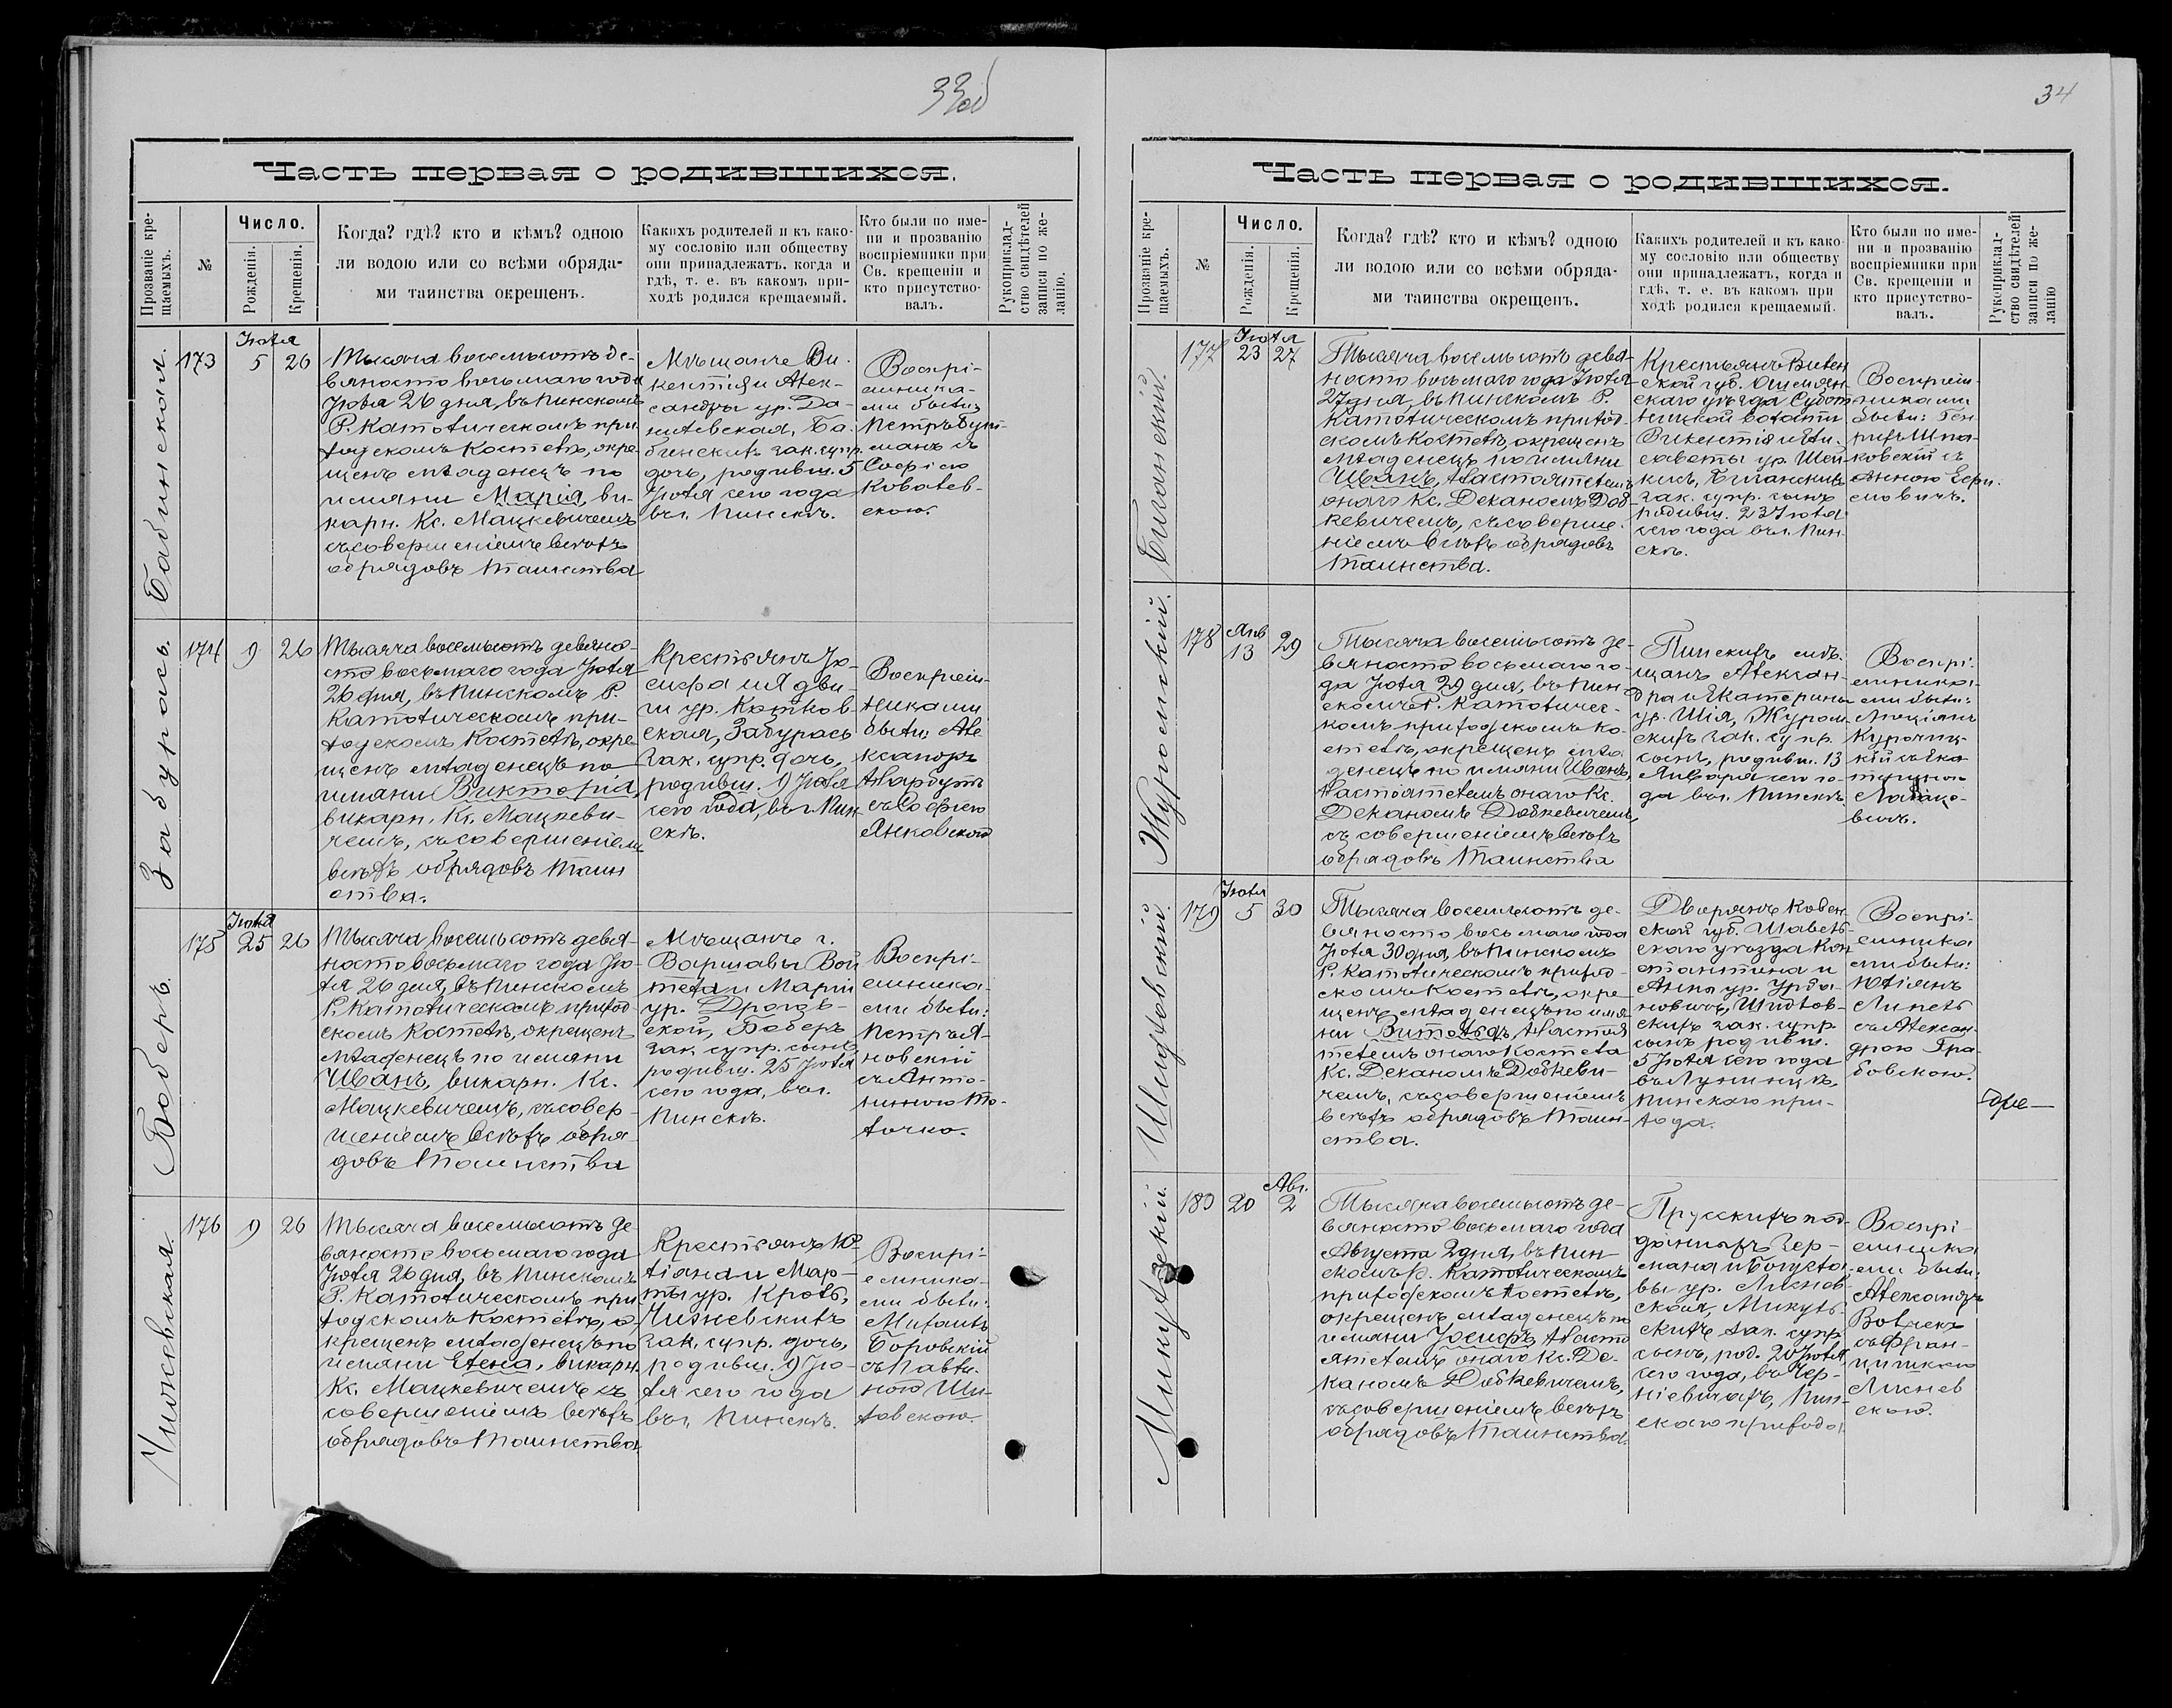 33об
Часть первая о родившихся.
Прозваніе кре-
щаемыхъ.
№
Число.
Рожденія.
Крещенія.
Когда? гдѣ? кто и кѣмъ? одною
ли водою или со всѣми обряда-
ми таинства окрещенъ.
Какихъ родителей и къ како-
му сословію или обществу
они принадлежатъ. когда и
гдѣ, т. е. въ какомъ при-
ходѣ родился крещаемый.
Кто были по име-
ни и прозванію
воспріемники при
Св. крещеніи и
кто присутство-
валъ.
Рукоприклад-
ство свидѣтелей
записи по же-
ланію.
Бабинская.
173
Іюля
5 26
Тысяча восемьсотъ де-
вяносто восьмаго года
Іюля 26 дня, въ Пинскомъ
Р. Католическомъ при
ходскомъ Костелѣ, окре-
щенъ младенецъ по
имяни Марія, ви-
карн. Кс. Мацкевичемъ
съ совершеніемъ всѣхъ
обрядовъ Таинства
Мѣщанъ Ви-
кентія и Алек-
сандры ур. Да-
нилевская, Ба-
бинскихъ зак. супр.
дочь, родивш. 5
Іюля сего года
въ г. Пинскѣ.
Воспрі-
емника-
ми были:
Петръ
съ
Софіею
Ковалев-
скою.
Забурась.
174
9 26
Тысяча восемьсотъ девяно-
сто восьмаго года Іюля
26 дня, въ Пинскомъ Р.
Католическомъ при-
ходскомъ Костелѣ, окре-
щенъ младенецъ по
имяни Викторія,
викарн. Кс. Мацкеви-
чемъ, съ совершеніем
всѣхъ обрядовъ Таин
ства.
Крестьянъ Іо-
сифа и Ядви-
ги ур. Котков-
ская, Забурась
зак. супр. дочь,
родивш. 9 Іюля
сего года, въ г. Пин-
скѣ.
Воспріем-
никами
были: Але
ксандръ
Нарбутъ
съ Софіею
Янковскою
Боберъ.
175
Іюля
25 26
Тысяча восемьсотъ девя-
носто восьмаго года Ію-
ля 26 дня, въ Пинскомъ
Р. Католическомъ приход-
скомъ Костелѣ, окрещенъ
младенецъ по имяни
Иванъ, викарн. Кс.
Мацкевичемъ, съ совер-
шеніемъ всѣхъ обря-
довъ Таинства
Мѣщанъ г.
Варшавы Вой
тела и Маріи
ур. Дрогъ-
ской, Боберъ
зак. супр. сынъ
родивш. 25 Іюля
сего года, въ г.
Пинскѣ.
Воспрі-
емника-
ми были:
Петръ Я-
новскій
съ Анто-
ниною То-
лочко.
Чижевская.
176
9 26
Тысяча восемьсотъ де
вяносто восьмаго года
Іюля 26 дня, въ Пинскомъ
Р. Католическомъ при
ходскомъ Костелѣ, о-
крещенъ младенецъ по
имяни Елена, викарн.
Кс. Мацкевичемъ съ
совершеніемъ всѣхъ
обрядовъ Таинства
Крестьянъ Ю-
ліана и Мар-
ты ур. Кроль,
Чижевскихъ
зак. супр. дочь,
родивш. 9 Ію-
ля сего года
въ г. Пинскѣ.
Воспрі-
емника-
ми были:
Михаилъ
Боровскій
съ Павли-
ною Ши-
ловскою.
34
Часть первая о родившихся.
Прозваніе кре-
щаемыхъ.
№
Число.
Рожденія.
Крещенія.
Когда? гдѣ? кто и кѣмъ? одною
ли водою или со всѣми обряда-
ми таинства окрещенъ.
Какихъ родителей и къ како-
му сословію или обществу
они принадлежатъ, когда и
гдѣ, т. е. въ какомъ при
ходѣ родился крещаемый.
Кто были по име-
ни и прозванію
воспріемники при
Св. крещеніи и
кто присутство-
валъ.
Рукоприклад-
ство свидѣтелей
записи по же-
ланію
Биганскій.
177
Іюля
23 27
Тысяча восемьсотъ девя-
носто восьмаго года Іюля
27 дня, въ Пинскомъ Р.
Католическомъ приход-
скомъ Костелѣ, окрещенъ
младенецъ по имяни
Иванъ, Настоятелемъ
онаго Кс. Деканомъ Доб-
кевичемъ, съ соверше-
ніемъ всѣхъ обрядовъ
Таинства.
Крестьянъ Вилен
ской губ. Ошмян-
скаго уѣзда Субот
ницкой волости
Викентія и Ели-
саветы ур. Шей-
кисъ, Биганскихъ
зак. супр. сынъ
родивш. 23 Іюля
сего года въ г. Пин
скѣ.
Воспріем-
никами
были: Ген
рихъ Шпа-
ковскій съ
Анною Ерм-
ловичъ.
Журомскій.
178
Янв
13 29
Тысяча восемьсотъ де-
вяносто восьмаго го-
да Іюля 29 дня, въ Пин-
скомъ Р. Католичес-
комъ приходскомъ Ко-
стелѣ, окрещенъ мла-
денецъ по имяни Иванъ,
Настоятелемъ онаго Кс.
Деканомъ Добкевичемъ,
съ совершеніемъ всѣхъ
обрядовъ Таинства
Пинскихъ мѣ-
щанъ Алексан-
дра и Екатерины
ур. Шія, Журом-
скихъ зак. супр.
сынъ, родивш. 13
Января сего го-
да въ г. Пинскѣ.
Воспрі-
емника-
ми были:
Люціанъ
Курочиц-
кій съ Ека-
териною
Шидловскій.
179
Іюля
5 30
Тысяча восемьсотъ де-
вяносто восьмаго года
Іюля 30 дня, въ Пинскомъ
Р. Католическомъ приход-
скомъ Костелѣ, окре-
щенъ младенецъ по имя-
ни Витольдъ, Настоя
телемъ онаго Костела
Кс. Деканомъ Добкеви-
чемъ, съ совершеніемъ
всѣхъ обрядовъ Таин-
ства.
Дворянъ Ковен-
ской губ. Шавель-
скаго уѣзда Кон
стантина и
Анны ур. Урба-
новичъ, Шидлов-
скихъ зак. супр
сынъ родивш.
5 Іюля сего года
въ Лунинцѣ,
Пинскаго при-
хода.
Воспрі-
емника
ми были:
Юліанъ
съ Алексан-
дрою Гра-
бовскою.
Микульскій.
180
20
Авг.
2
Тысяча восемьсотъ де-
вяносто восьмаго года
Августа 2 дня, въ Пин
скомъ Р. Католическомъ
приходскомъ Костелѣ,
окрещенъ младенецъ по
имяни Іосифъ, Насто
ятелемъ онаго Кс. Де-
каномъ Добкевичемъ,
съ совершеніемъ всѣхъ
обрядовъ Таинства.
Прусскихъ под-
данныхъ Гер-
мана и Богусла-
вы ур. Лиснев-
ская, Микуль-
скихъ зак. супр.
сынъ, род. 20 Іюля
сего года, въ Чер-
нѣевичахъ, Пин-
скаго прихода.
Воспрі-
емника
ми были:
Александръ
съ Фран-
цишкою
Лиснев
скою.